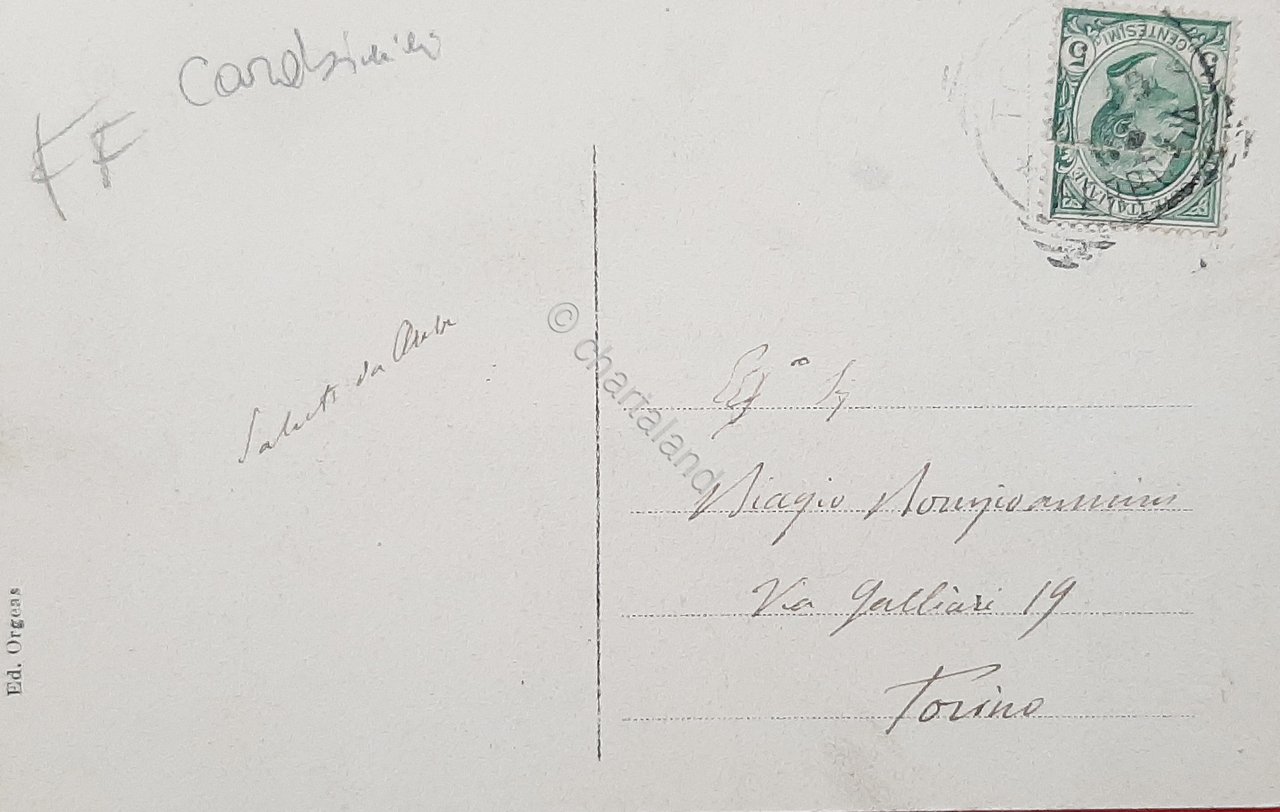 FF
Saluti da
Eg° Sig
Biagio
Via Galliari 19
Torino
Ed. Orgeas
5 CENTESIMI 5
POSTE ITALIANE
© chartaland